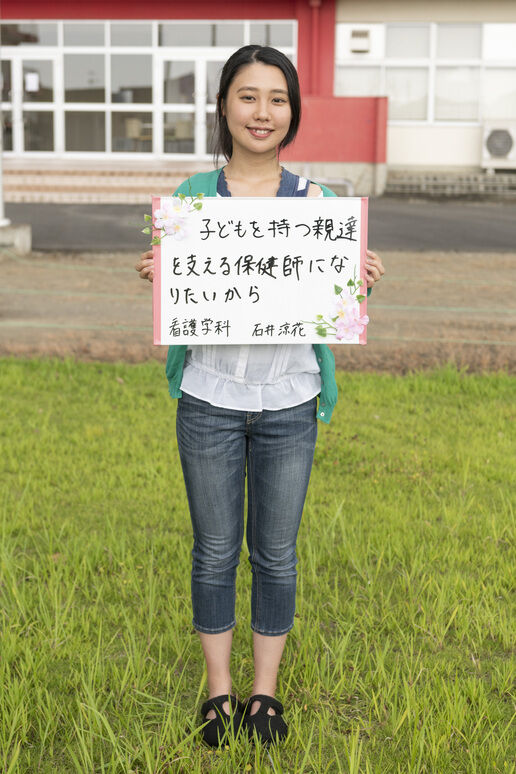 子どもを持つ親達
を支える保健師にな
りたいから
看護学科 石井涼花